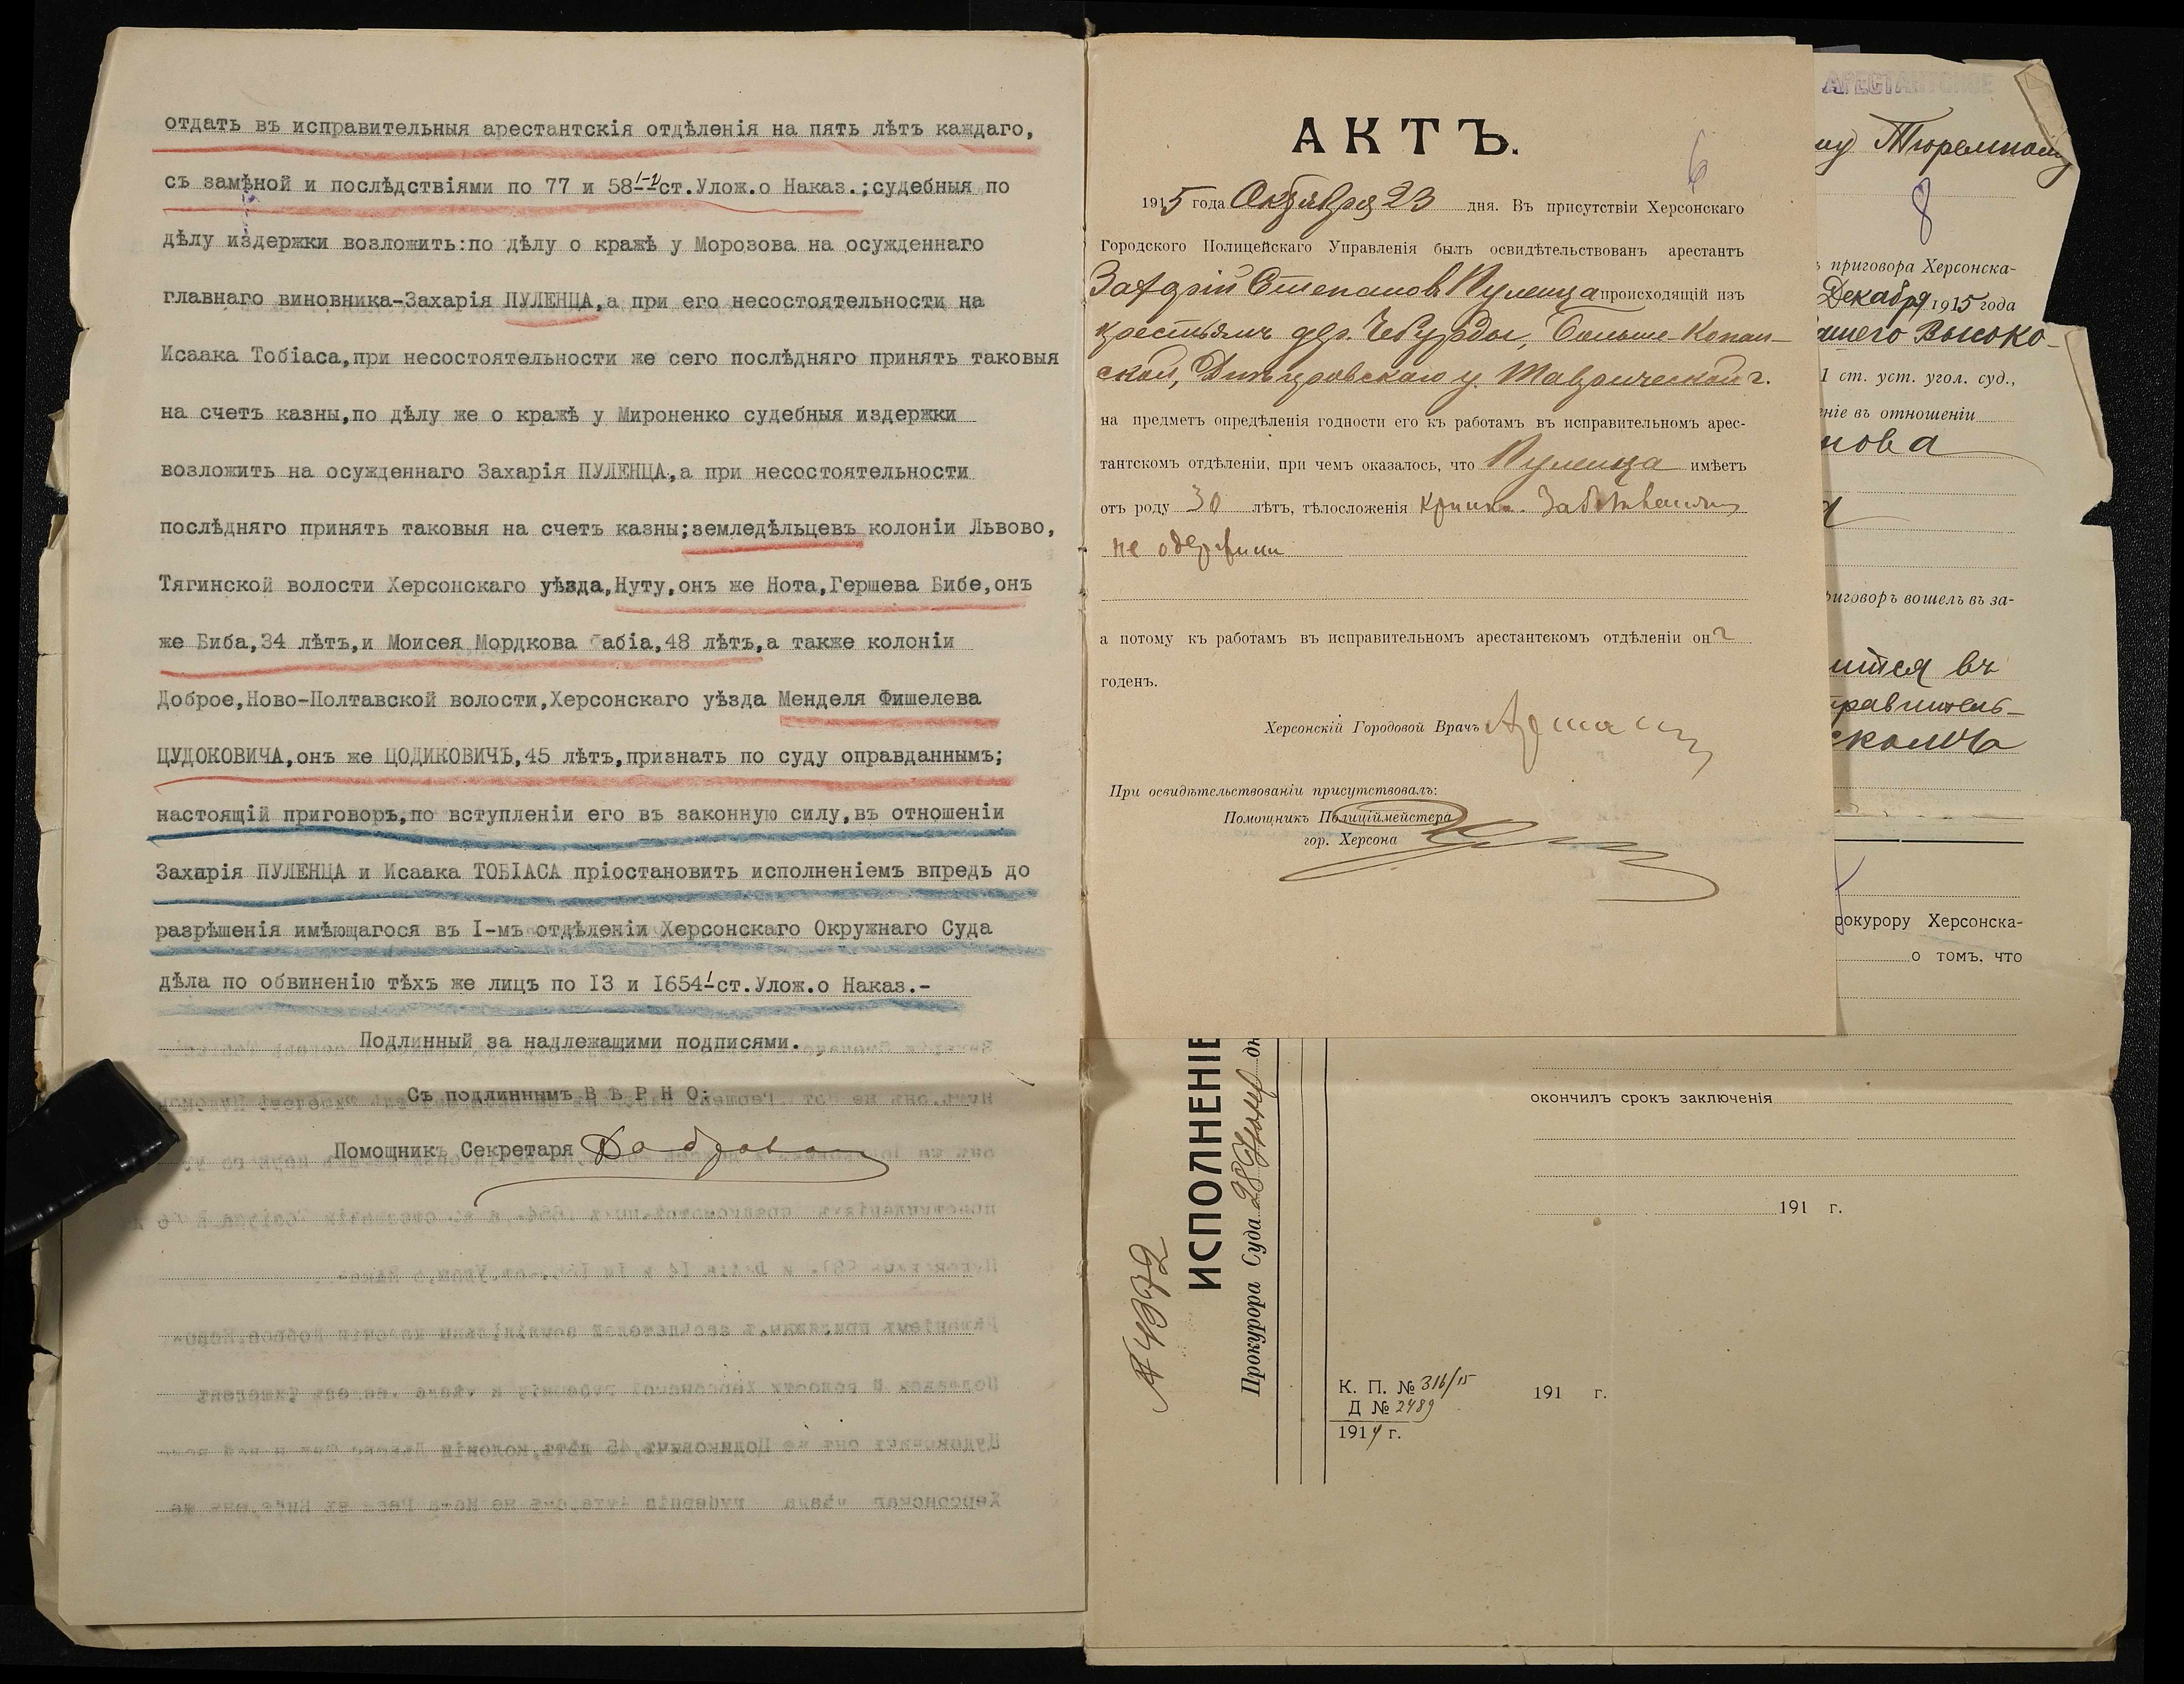 отдать въ исправительныя арестантскія отдѣленія на пять лѣтъ каждаго,
съ замѣной и послѣдствіями по 77 и 58 1-2 ст.Улож.о Наказ.;судебныя по
дѣлу издержки возложить:по дѣлу о кражѣ у Морозова на осужденнаго
главнаго виновника-Захарія ПУЛЕНЦА,а при его несостоятельности на
Исаака Тобіаса,при несостоятельности же сего послѣдняго принять таковыя
на счетъ казны,по дѣлу же о кражѣ у Мироненко судебныя издержки
возложить на осужденнаго Захарія ПУЛЕНЦА,а при несостоятельности
послѣдняго принять таковыя на счетъ казны;земледѣльцевъ колоніи Львово,
Тягинской волости Херсонскаго уѣзда,Нуту,онъ же Нота,Гершева Бибе,онъ
же Биба,34 лѣтъ,и Моисея Мордкова абіа,48 лѣтъ,а также колоніи
Доброе,Ново-Полтавской волости,Херсонскаго уѣзда Менделя Фишелева
ЦУДОКОВИЧА,онъ же ЦОДИКОВИЧЪ,45 лѣтъ,признать по суду оправданнымъ;
настоящій приговоръ,по вступленіи его въ законную силу,въ отношеніи
Захарія ПУЛЕНЦА и Исаака ТОБІАСА пріостановить исполненіемъ впредь до
разрѣшенія имѣющагося въ I-мъ отдѣленіи Херсонскаго Окружнаго Суда
дѣла по обвиненію тѣхъ же лицъ по I3 и I654 1 ст.Улож.о Наказ.-
Подлинный за надлежащими подписями.
Съ подлиннымъ В Ѣ Р Н О:
Помощникъ Секретаря
АКТЪ.
6
1915 года Октября 23 дня. Въ присутствіи Херсонскаго
Городского Полицейскаго Управленія былъ освидѣтельствованъ арестантъ
Захарій Степановъ Пуленца происходящій изъ
крестьянъ дер. Чебурды, Больше-Копан-
ской, Днѣпровскаго у. Таврической г.
на предметъ опредѣленія годности его къ работамъ въ исправительномъ арес-
тантскомъ отдѣленіи, при чемъ оказалось, что Пуленца имѣетъ
отъ роду 30 лѣтъ, тѣлосложенія
не
а потому къ работамъ въ исправительномъ арестантскомъ отдѣленіи онъ
годенъ.
Херсонскій Городовой Врачъ
При освидѣтельствованіи присутствовалъ:
Помощникъ Полиціймейстера
гор. Херсона
АРЕСТАНТСКОЕ
му Тюремному
8
ъ приговора Херсонска-
Декабря 1915 года
ашего Высоко-
1 ст. уст. угол. суд.,
еніе въ отношеніи
нова
а
риговоръ вошелъ въ за-
ится въ
правитель-
рокурору Херсонска-
о томъ, что
окончилъ срокъ заключенія
191 г.
№ 4372
ИСПОЛНЕНІЕ
Прокурора Суда 28
К. П. № 316/15
Д № 2489
1914 г.
191 г.